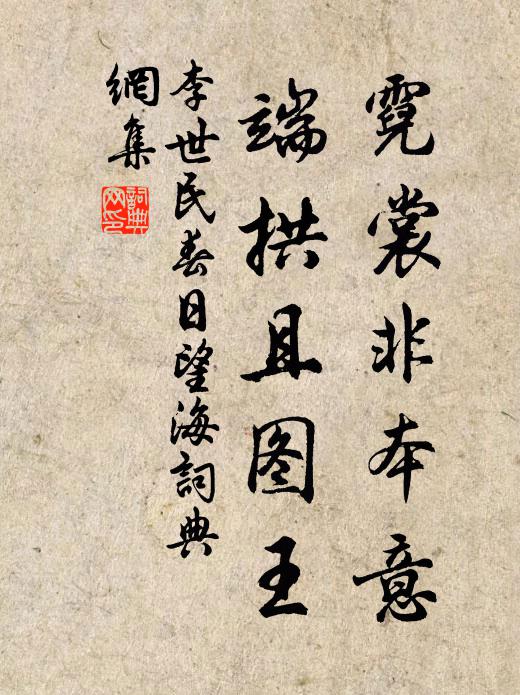 霓裳非本意
端拱且图王
李世民春日望海詞典
網集
詞典
网印